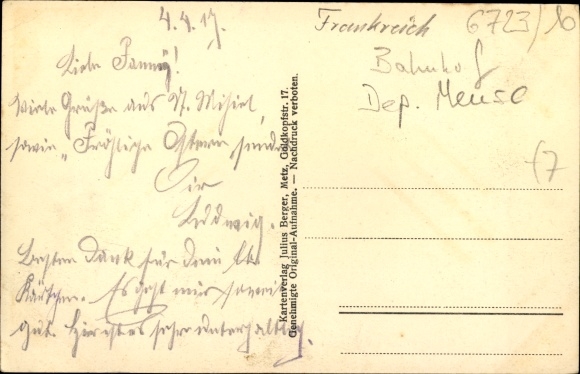 4.4.17.
Liebe Fanny!
Viele Grüße aus St. Mihiel,
sowie „Fröhliche Ostern" sendet
Dir
Ludwig.
Besten Dank für Dein lb.
Kärtchen. Es geht mir soweit
gut. Hier ist es sehr unterhaltlich.
Kartenverlag Julius Berger, Metz, Goldkopfstr. 17.
Genehmigte Original-Aufnahme. — Nachdruck verboten.
Frankreich
6723/10
Bahnhof
Dep. Meuse
f7